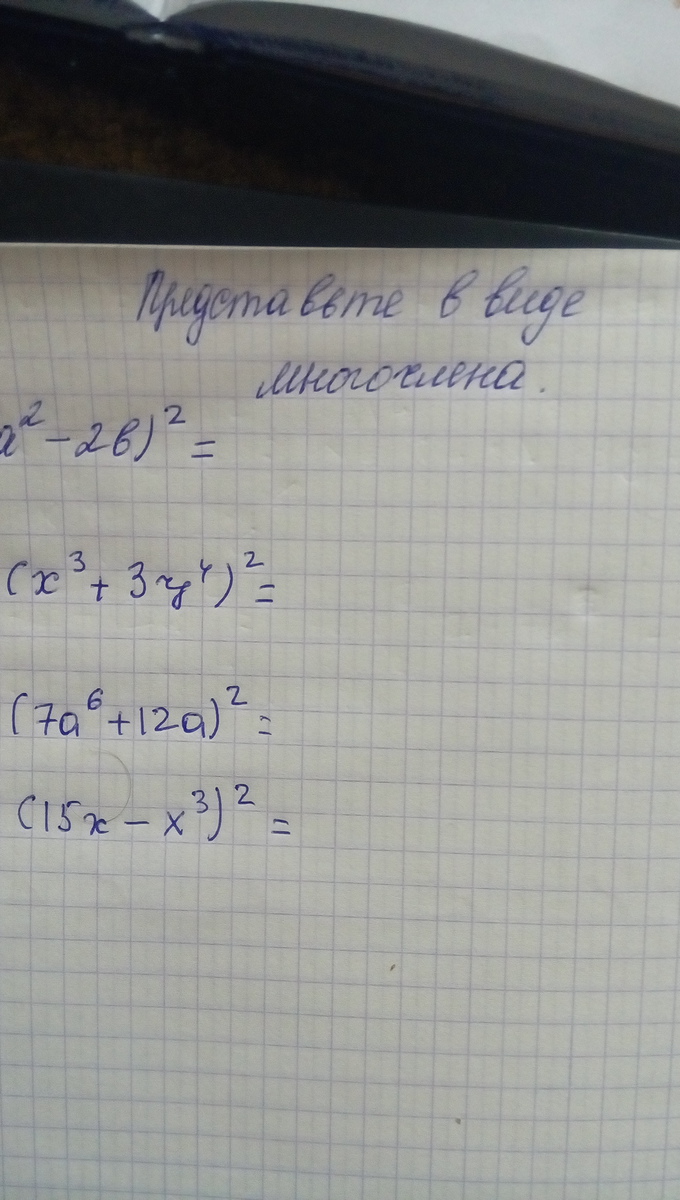 Представьте в виде
многочлена.
a² - 2в)² =
(x³ + 3y⁴)² =
(7a⁶ + 12a)² =
(15x - x³)² =